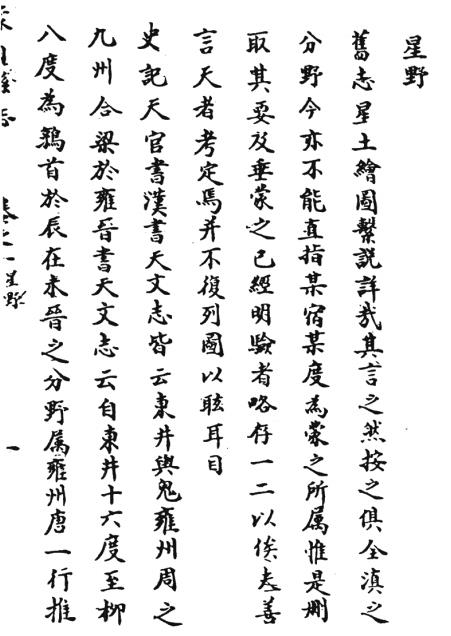 星野
舊志星土繪圖繫説詳哉其言之然按之俱全滇之
分野今亦不能直指某宿某度為蒙之所属惟是刪
取其要及垂蒙之已經明驗者略存一二以俟夫善
言天者考定焉并不復列圖以眩耳目
史記天官書漢書天文志皆云東井與鬼雍州周之
九州合梁於雍晉書天文志云自東井十六度至柳
八度為鶉首於辰在未晉之分野属雍州唐一行推
卷之一 星野 一